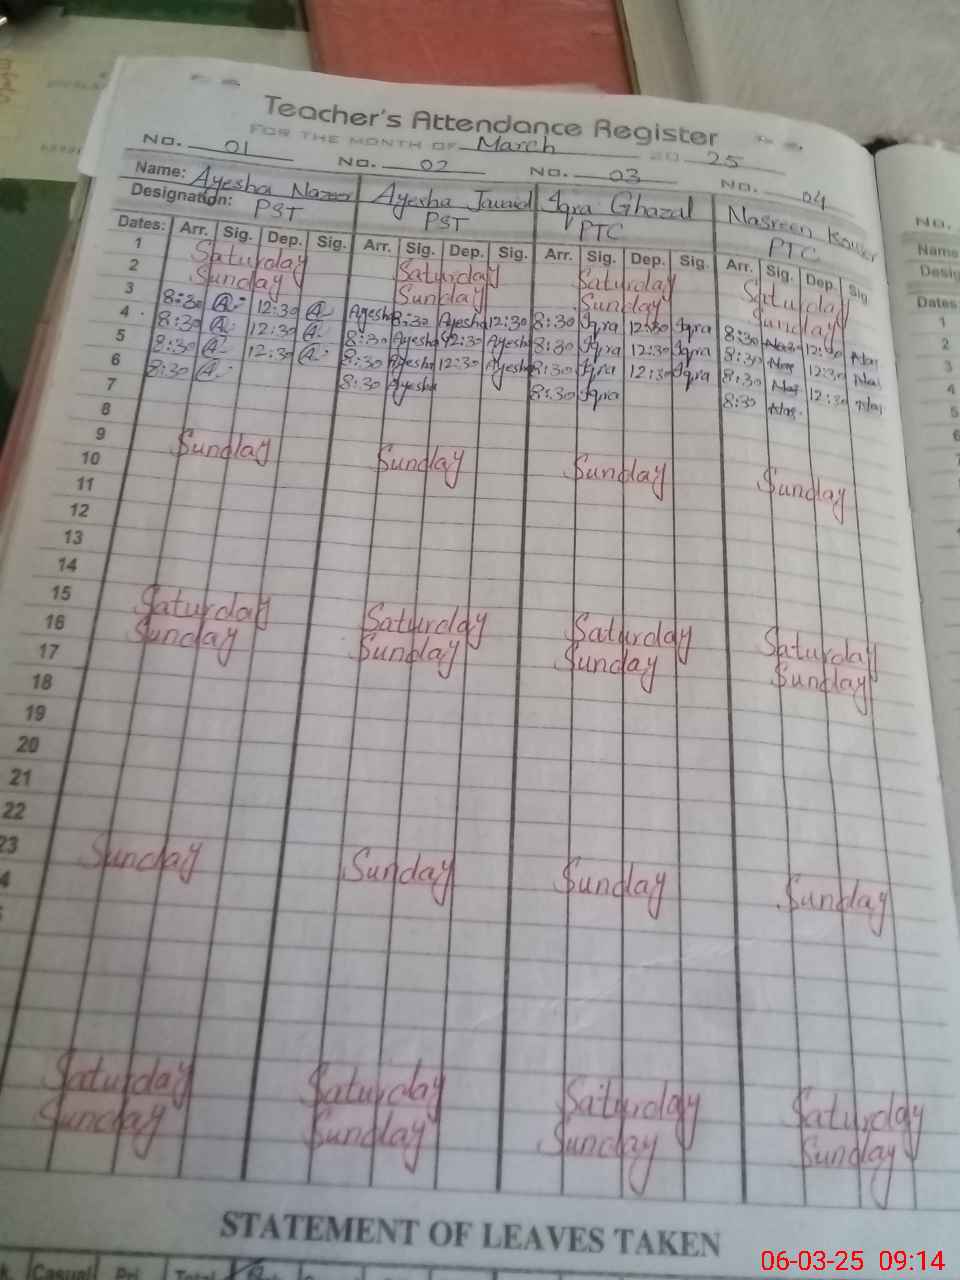 Teacher's Attendance Register
FOR THE MONTH OF March 20 25
NO. 01 NO. 02 NO. 03 NO. 04
Name: Ayesha Nazeer Ayesha Javaid Iqra Ghazal Nasreen Kousar
Designation: PST PST PTC PTC
Dates: Arr. Sig. Dep. Sig. Arr. Sig. Dep. Sig. Arr. Sig. Dep. Sig. Arr. Sig. Dep. Sig.
1 Saturday Saturday Saturday Saturday
2 Sunday Sunday Sunday Sunday
3 8:30 A 12:30 A Ayesha 8:30 Ayesha 12:30 8:30 Iqra 12:30 Iqra 8:30 Nas 12:30 Nas
4 8:30 A 12:30 A 8:30 Ayesha 12:30 Ayesha 8:30 Iqra 12:30 Iqra 8:30 Nas 12:30 Nas
5 8:30 A 12:30 A 8:30 Ayesha 12:30 Ayesha 8:30 Iqra 12:30 Iqra 8:30 Nas 12:30 Nas
6 8:30 A 8:30 Ayesha 8:30 Iqra 8:30 Nas.
7
8
9 Sunday Sunday Sunday Sunday
10
11
12
13
14
15 Saturday Saturday Saturday Saturday
16 Sunday Sunday Sunday Sunday
17
18
19
20
21
22
23 Sunday Sunday Sunday Sunday
4
Saturday Saturday Saturday Saturday
Sunday Sunday Sunday Sunday
STATEMENT OF LEAVES TAKEN
Casual Pri Total
NO.
Name
Desig
Dates
1
2
3
4
5
06-03-25 09:14